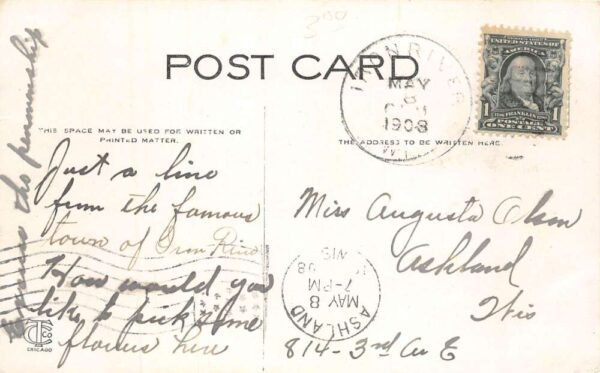 300
POST CARD
THIS SPACE MAY BE USED FOR WRITTEN OR
PRINTED MATTER.
THE ADDRESS TO BE WRITTEN HERE.
IRON RIVER
MAY
8
1908
WIS
UNITED STATES OF
AMERICA
1 FRANKLIN 1
POSTAGE
ONE CENT
Just a line
from the famous
town of Iron River
How would you
like to pick some
flowers here
the penmanship
Miss Augusta Olson
Ashland
Wis
814-3rd Av E
ASHLAND
MAY 8
7-PM
08
WIS
CHICAGO